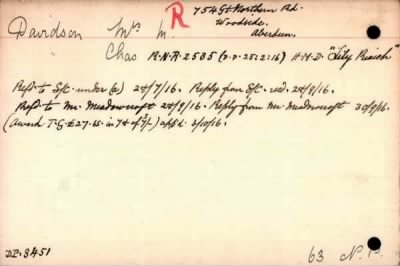 R 754 Gt Northern Rd.
Davidson Mrs M. Woodside.
Aberdeen.
Chas R.N.R 2585 (D.D. 25:2:16) H.M.D. "Lily Reaich"
Refd. to S/c. under (a) 24/7/16. Reply from S/c. recd. 24/8/16.
Refd. to Mr. Meadowcroft 24/8/16. Reply from Mr. Meadowcroft 30/9/16.
(Award T.G. £27.65. in 74 of 7/-) appd. 3/10/16.
D.P. 8451
63 N. P.